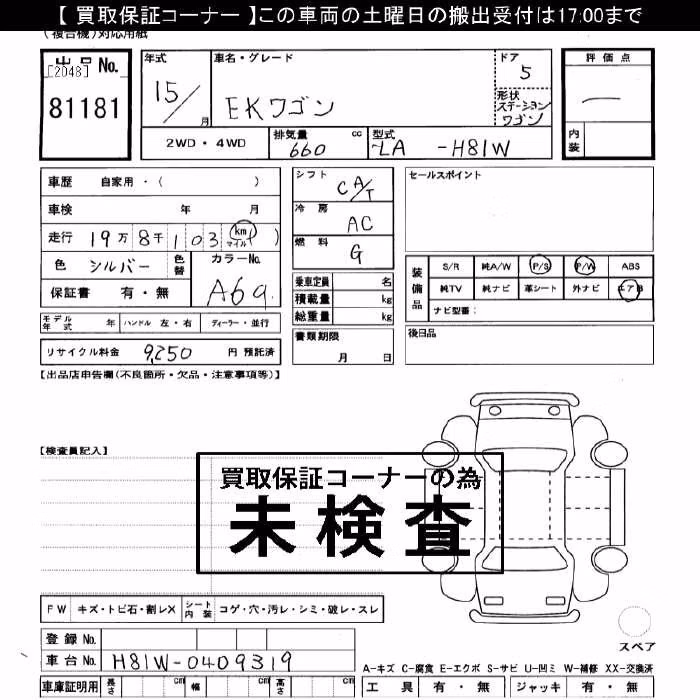 【 買取保証コーナー 】この車両の土曜日の搬出受付は17:00まで
(複合機)対応用紙
出品No.
[2048]
81181
年式
15/
月
車名・グレード
EKワゴン
ドア
5
形状
ステーション
ワゴン
評価点
内装
2WD・4WD
排気量
660
cc
型式
LA -H81W
車歴 自家用・( )
車検 年 月
走行 19万8千103(km マイル)
色 シルバー
色替
カラーNo.
A69
保証書 有・無
モデル年式 年 ハンドル 左・右 ディーラー・並行
リサイクル料金 9,250 円 預託済
シフト CA/T
冷房 AC
燃料 G
乗車定員 名
積載量 kg
総重量 kg
書類期限
月 日
セールスポイント
装備品
S/R 純A/W P/S P/W ABS
純TV 純ナビ 革シート 外ナビ エアB
ナビ型番:
後日品
【出品店申告欄(不良箇所・欠品・注意事項等)】
【検査員記入】
買取保証コーナーの為
未検査
FW キズ・トビ石・割レX シート内装 コゲ・穴・汚レ・シミ・破レ・スレ
登録No.
車台No. H81W-0409319
車庫証明用 長さ cm 幅 cm 高さ cm
スペア
A-キズ C-腐食 E-エクボ S-サビ U-凹ミ W-補修 XX-交換済
工具 有・無 ジャッキ 有・無